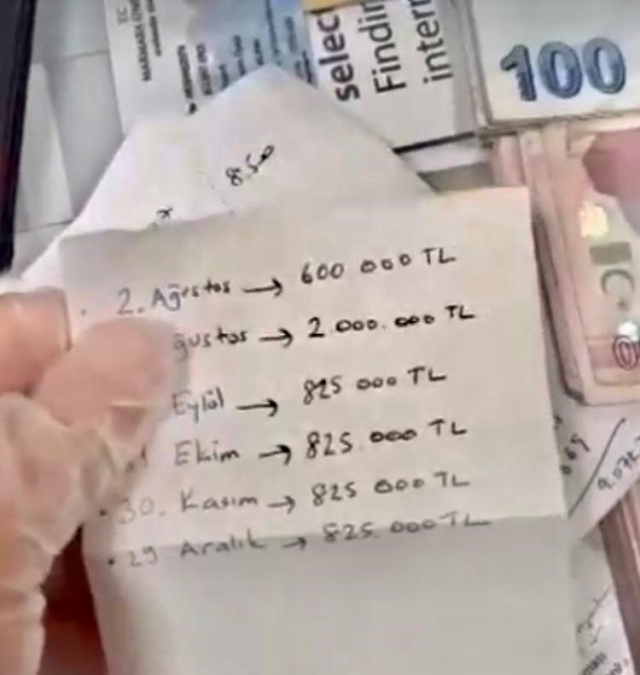 selec
Findin
inter
100
8.50
· 2. Ağustos → 600 000 TL
ğustos → 2.000.000 TL
Eylül → 825 000 TL
Ekim → 825.000 TL
· 30. Kasım → 825 000 TL
· 29 Aralık → 825.000 TL